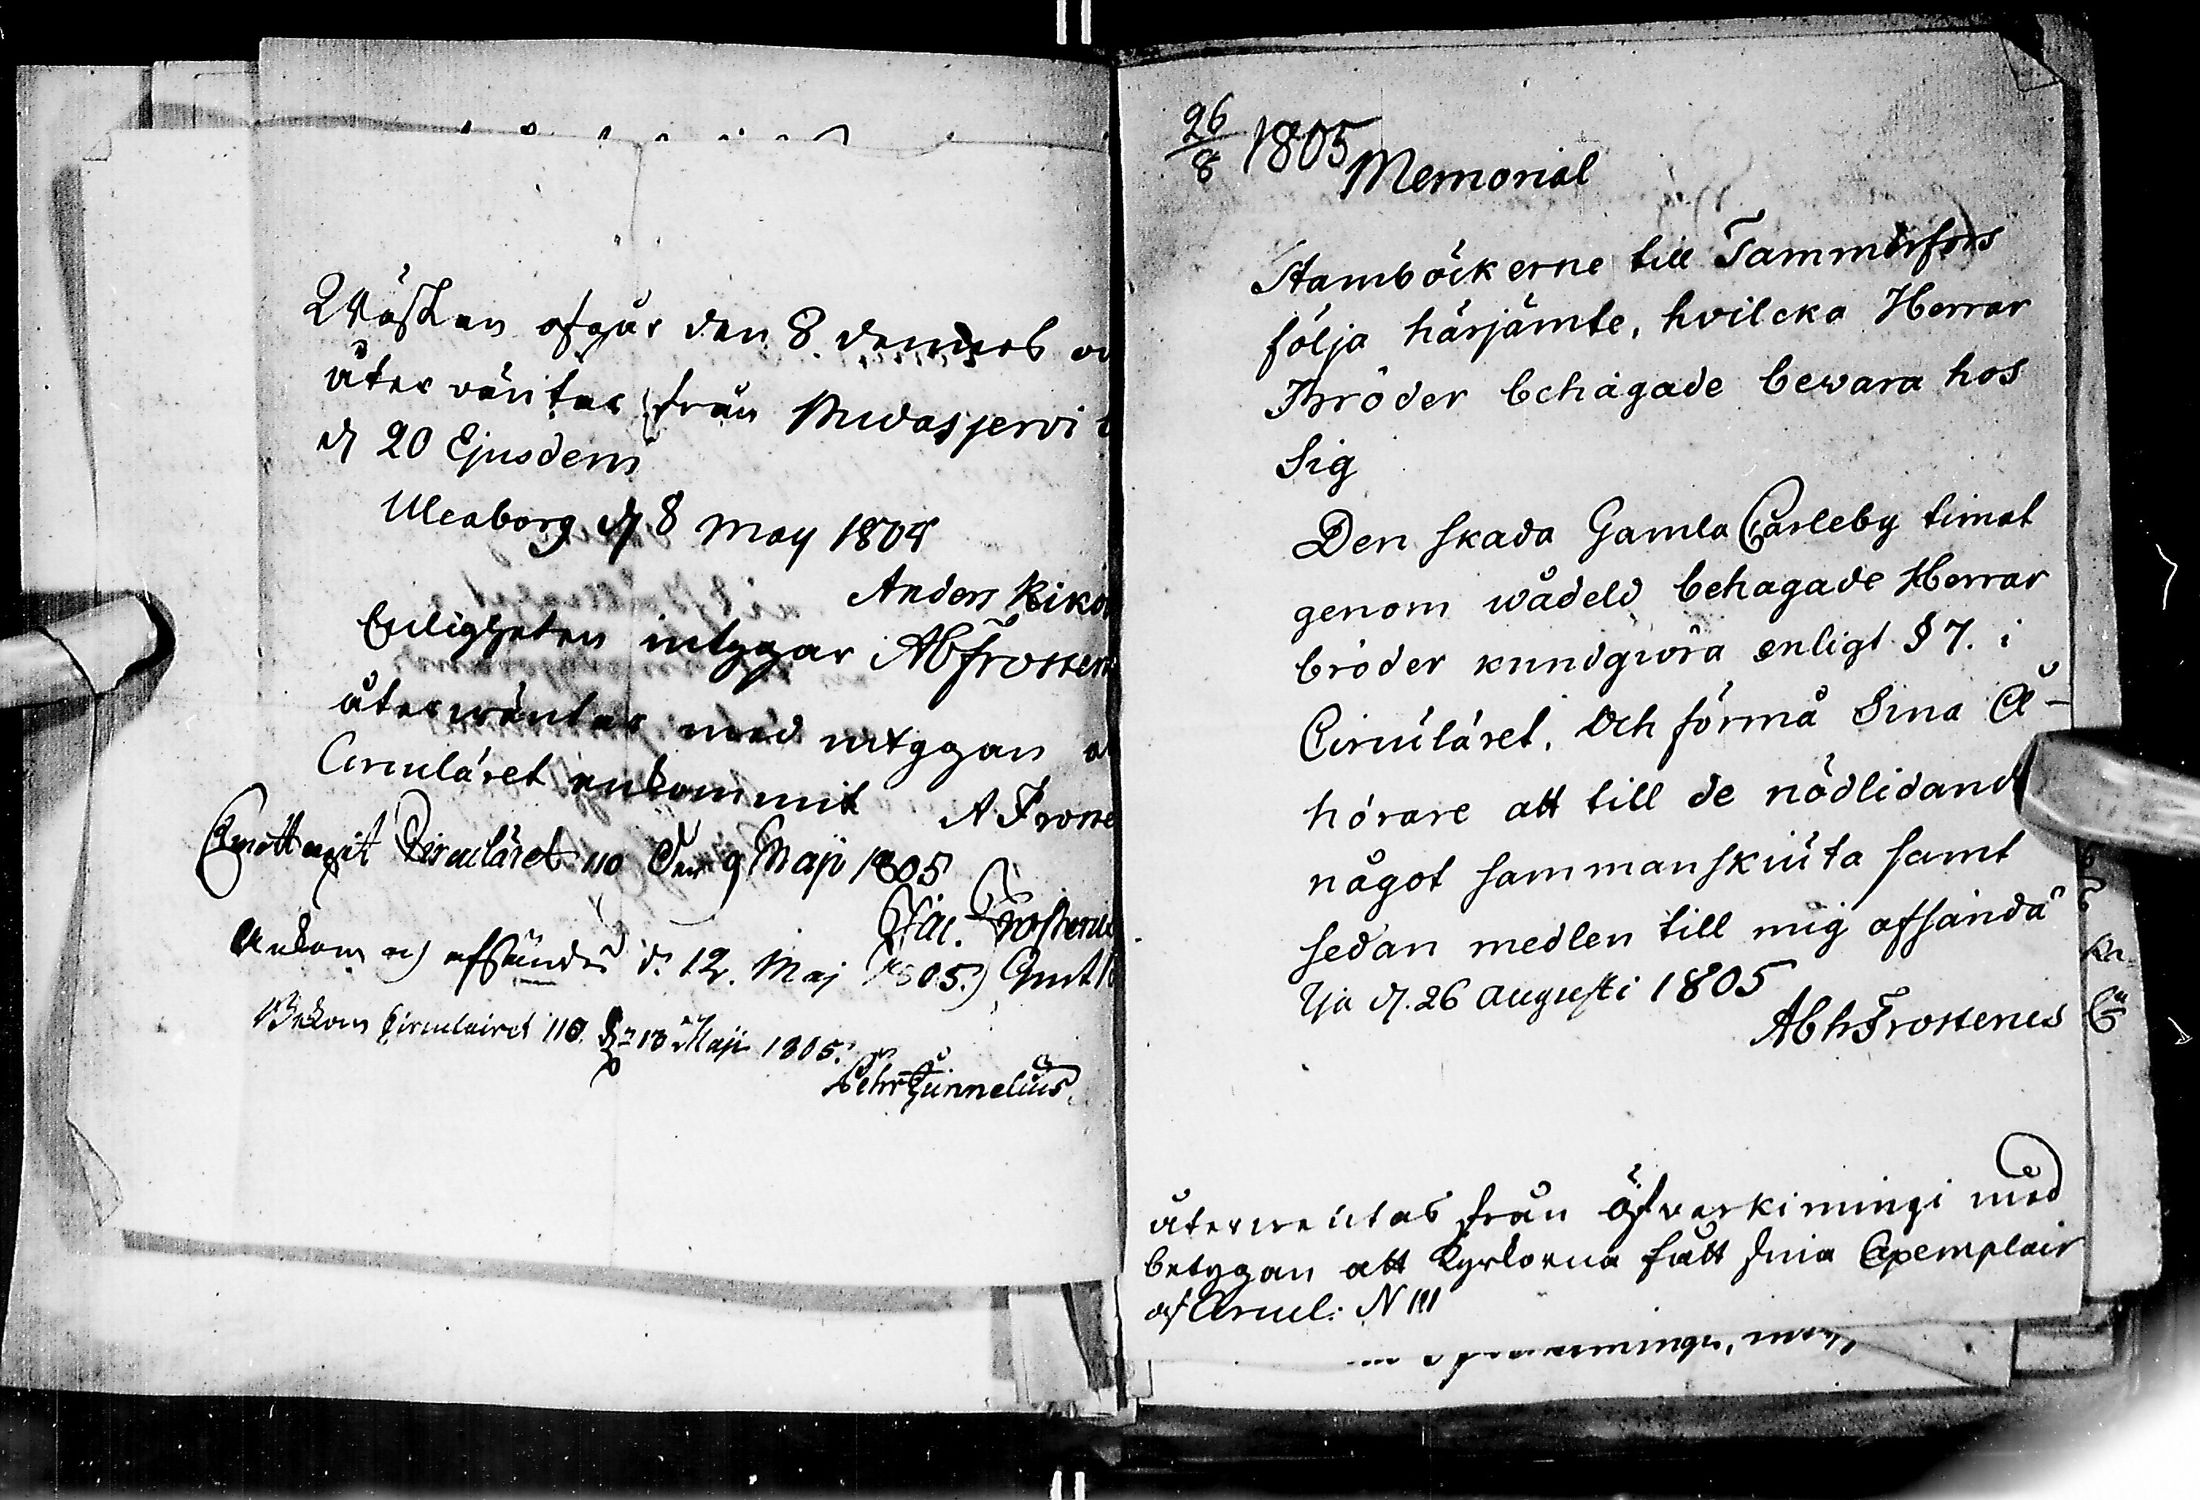 Wäskan afgår den 8 dennes oc
återväntas från Pudasjervi
d 20 Ejusdem
Uleaborg d 8 May 1805
Anders Riko
Enligheten intygar AbFrosteru
återwäntas med intygan at
Circuläret ankommit A Froste
Emottagit Circuläret 110 den 9 Maji 1805
Jac. Frosterus
Ankom och afsändes d. 12. Maj 1805.)
Bekom Circulairet 110. d 13 Maji 1805.
Pehr Tünnelius
26/8 1805
Memorial
Stamböckerne till Tammerfors
följa härjämte, hvilcka Herrar
Bröder behagade bewara hos
Sig
Den skada Gamla Carleby timat
genom wådeld behagade Herrar
bröder kundgiöra enligt § 7. i
Circuläret, Och förmå Sina Å-
hörare att till de nödlidande
något sammanskiuta samt
sedan medlen till mig afsända
Ijo d. 26 Augusti 1805
AbhFrosterus
återwentas från Öfverkimingi med
betygan att Kyrkorna fått sina Exemplair
af Circul: N 111